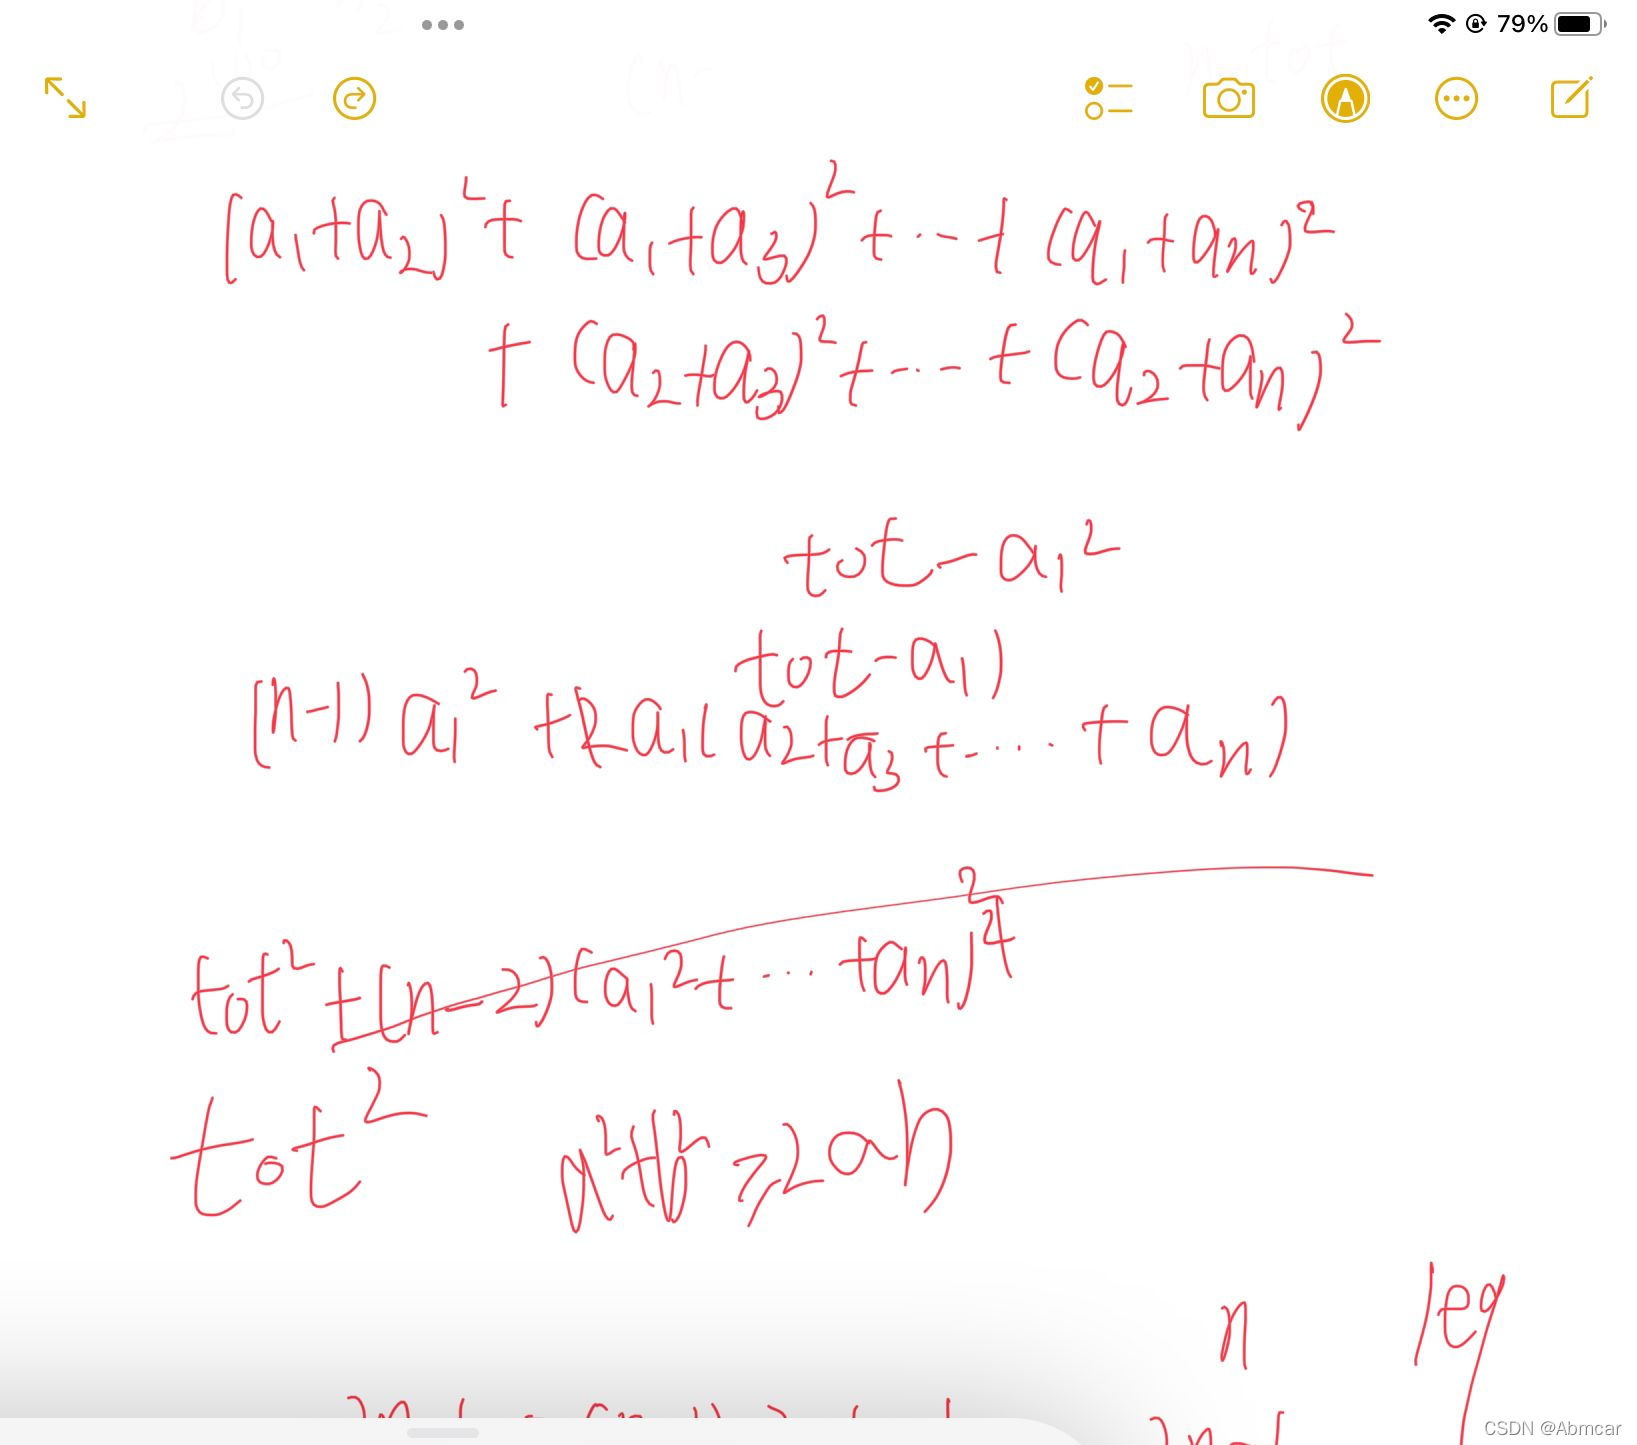 79%
(a₁+a₂)² + (a₁+a₃)² + ... + (a₁+aₙ)²
+ (a₂+a₃)² + ... + (a₂+aₙ)²
tot - a₁²
tot - a₁)
(n-1) a₁² + 2a₁( a₂+a₃ + ... + aₙ)
tot² + (n-2)(a₁² + ... + aₙ)
tot² a²+b² ≥ 2ab
n leq
CSDN @Abmcar